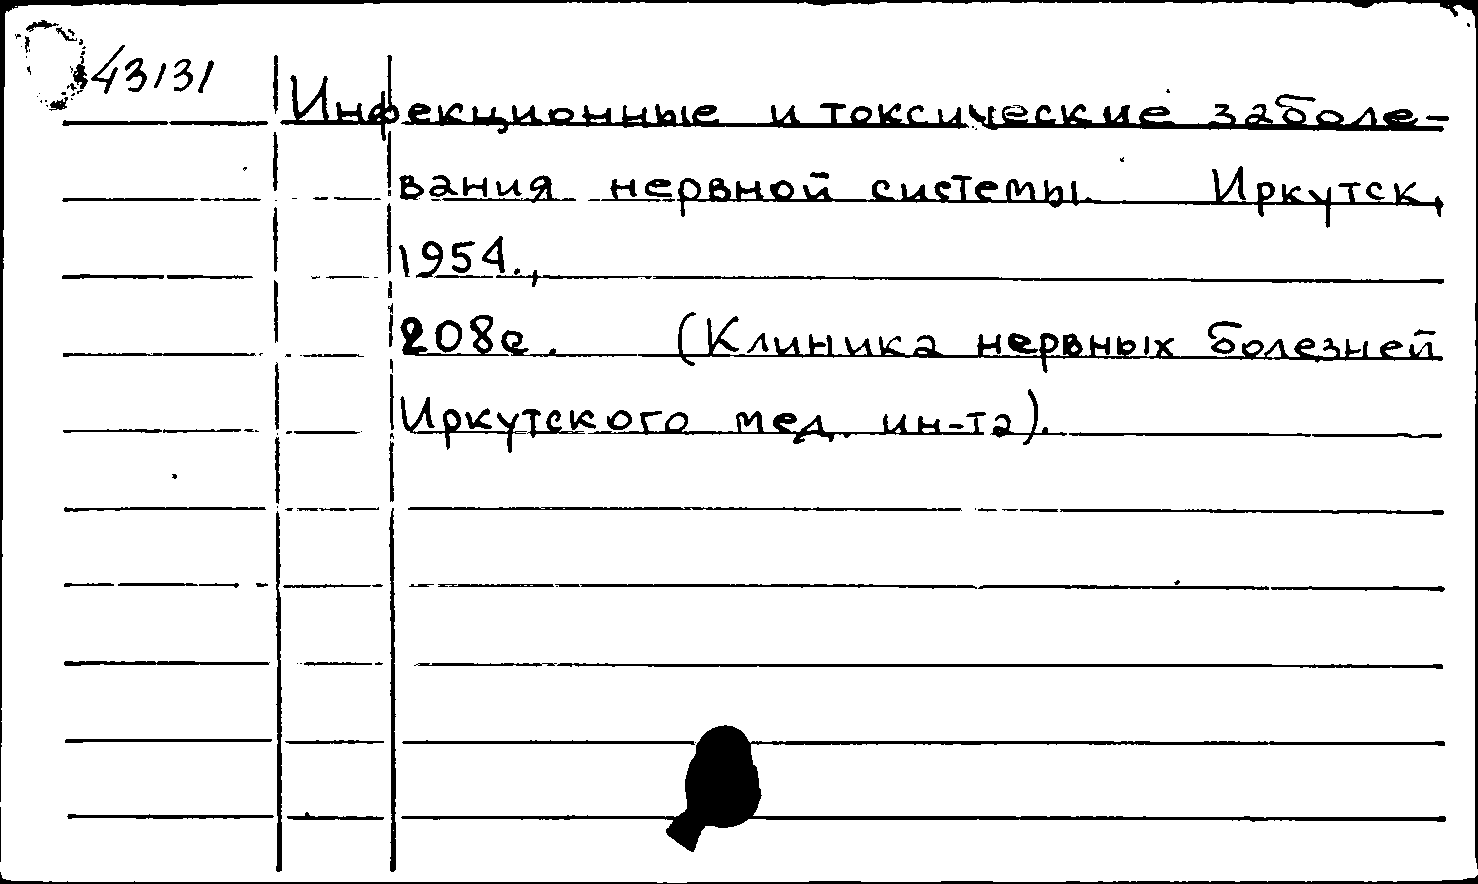 43131
Инфекционные и токсические заболе-
вания нервной системы. Иркутск,
1954.,
208с. (Клиника нервных болезней
Иркутского мед. ин-та).